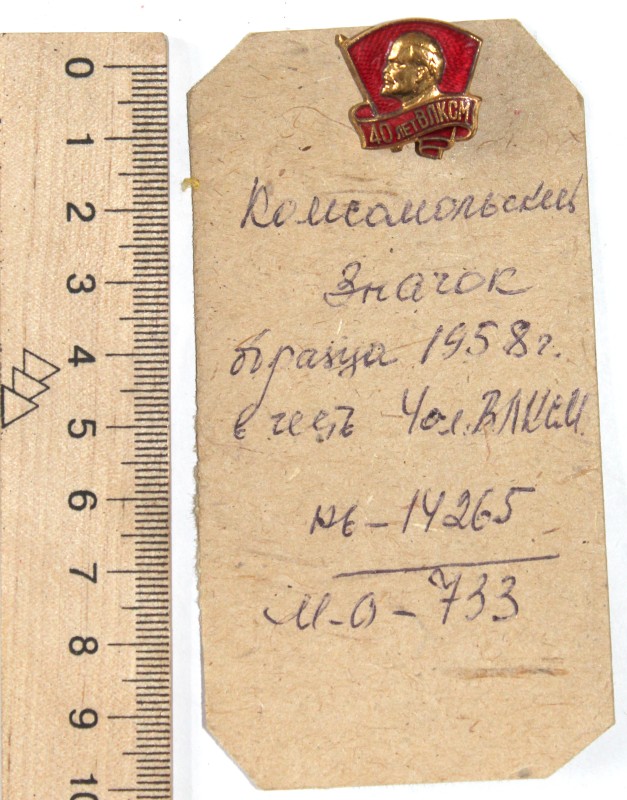 40 ЛЕТ ВЛКСМ
Комсомольский
Значок
образца 1958 г.
в честь 40л. ВЛКСМ
КК-14265
М-О-733
0
1
2
3
4
5
6
7
8
9
10